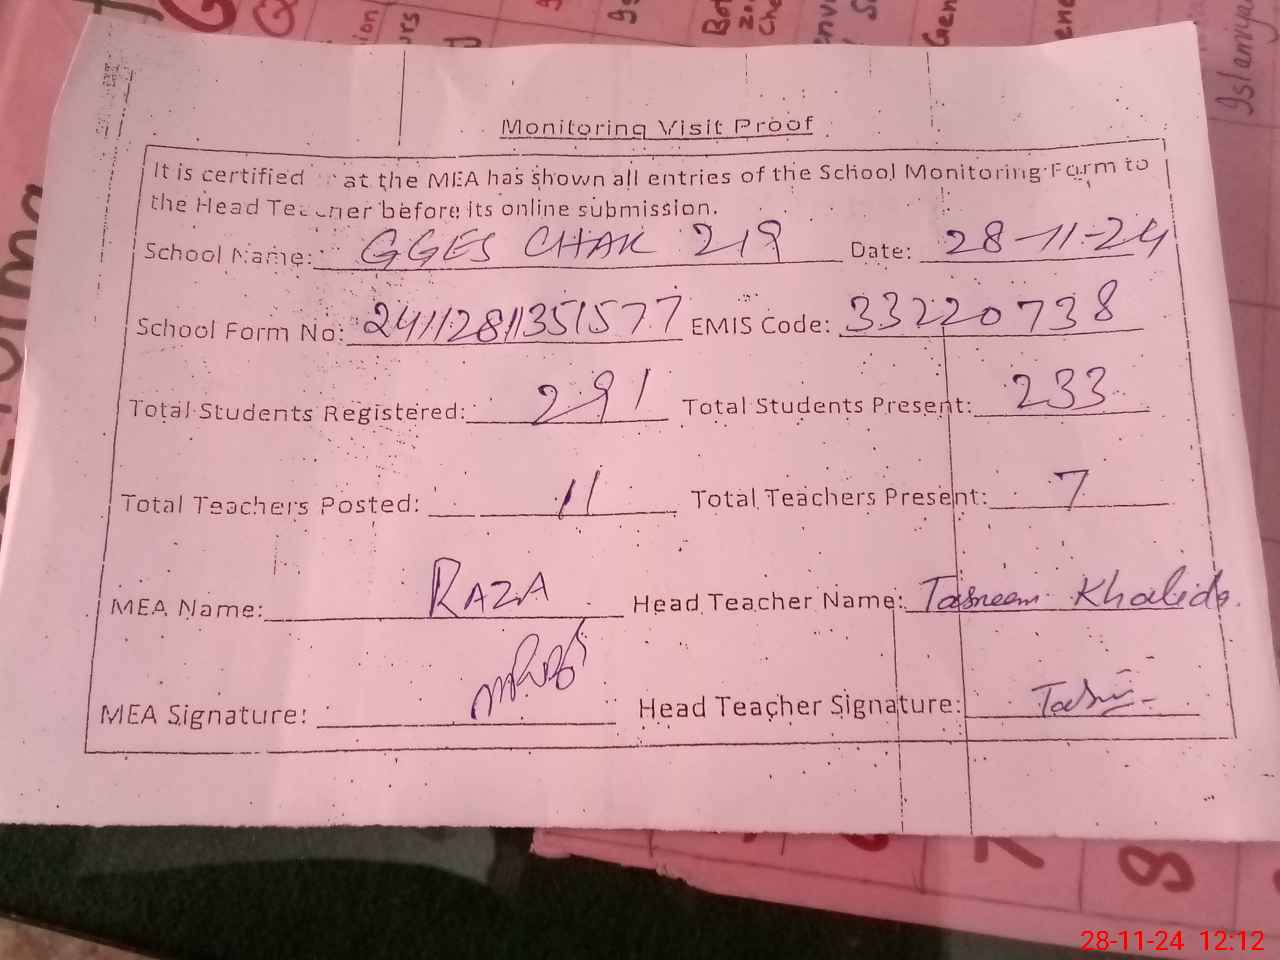 Monitoring Visit Proof
It is certified at the MEA has shown all entries of the School Monitoring Form to
the Head Teacher before its online submission.
School Name: GGES CHAK 219 Date: 28-11-24
School Form No: 24112811351577 EMIS Code: 33220738
Total Students Registered: 291 Total Students Present: 233
Total Teachers Posted: 11 Total Teachers Present: 7
MEA Name: RAZA Head Teacher Name: Tasneem Khalida.
MEA Signature: Head Teacher Signature:
7 8
28-11-24 12:12